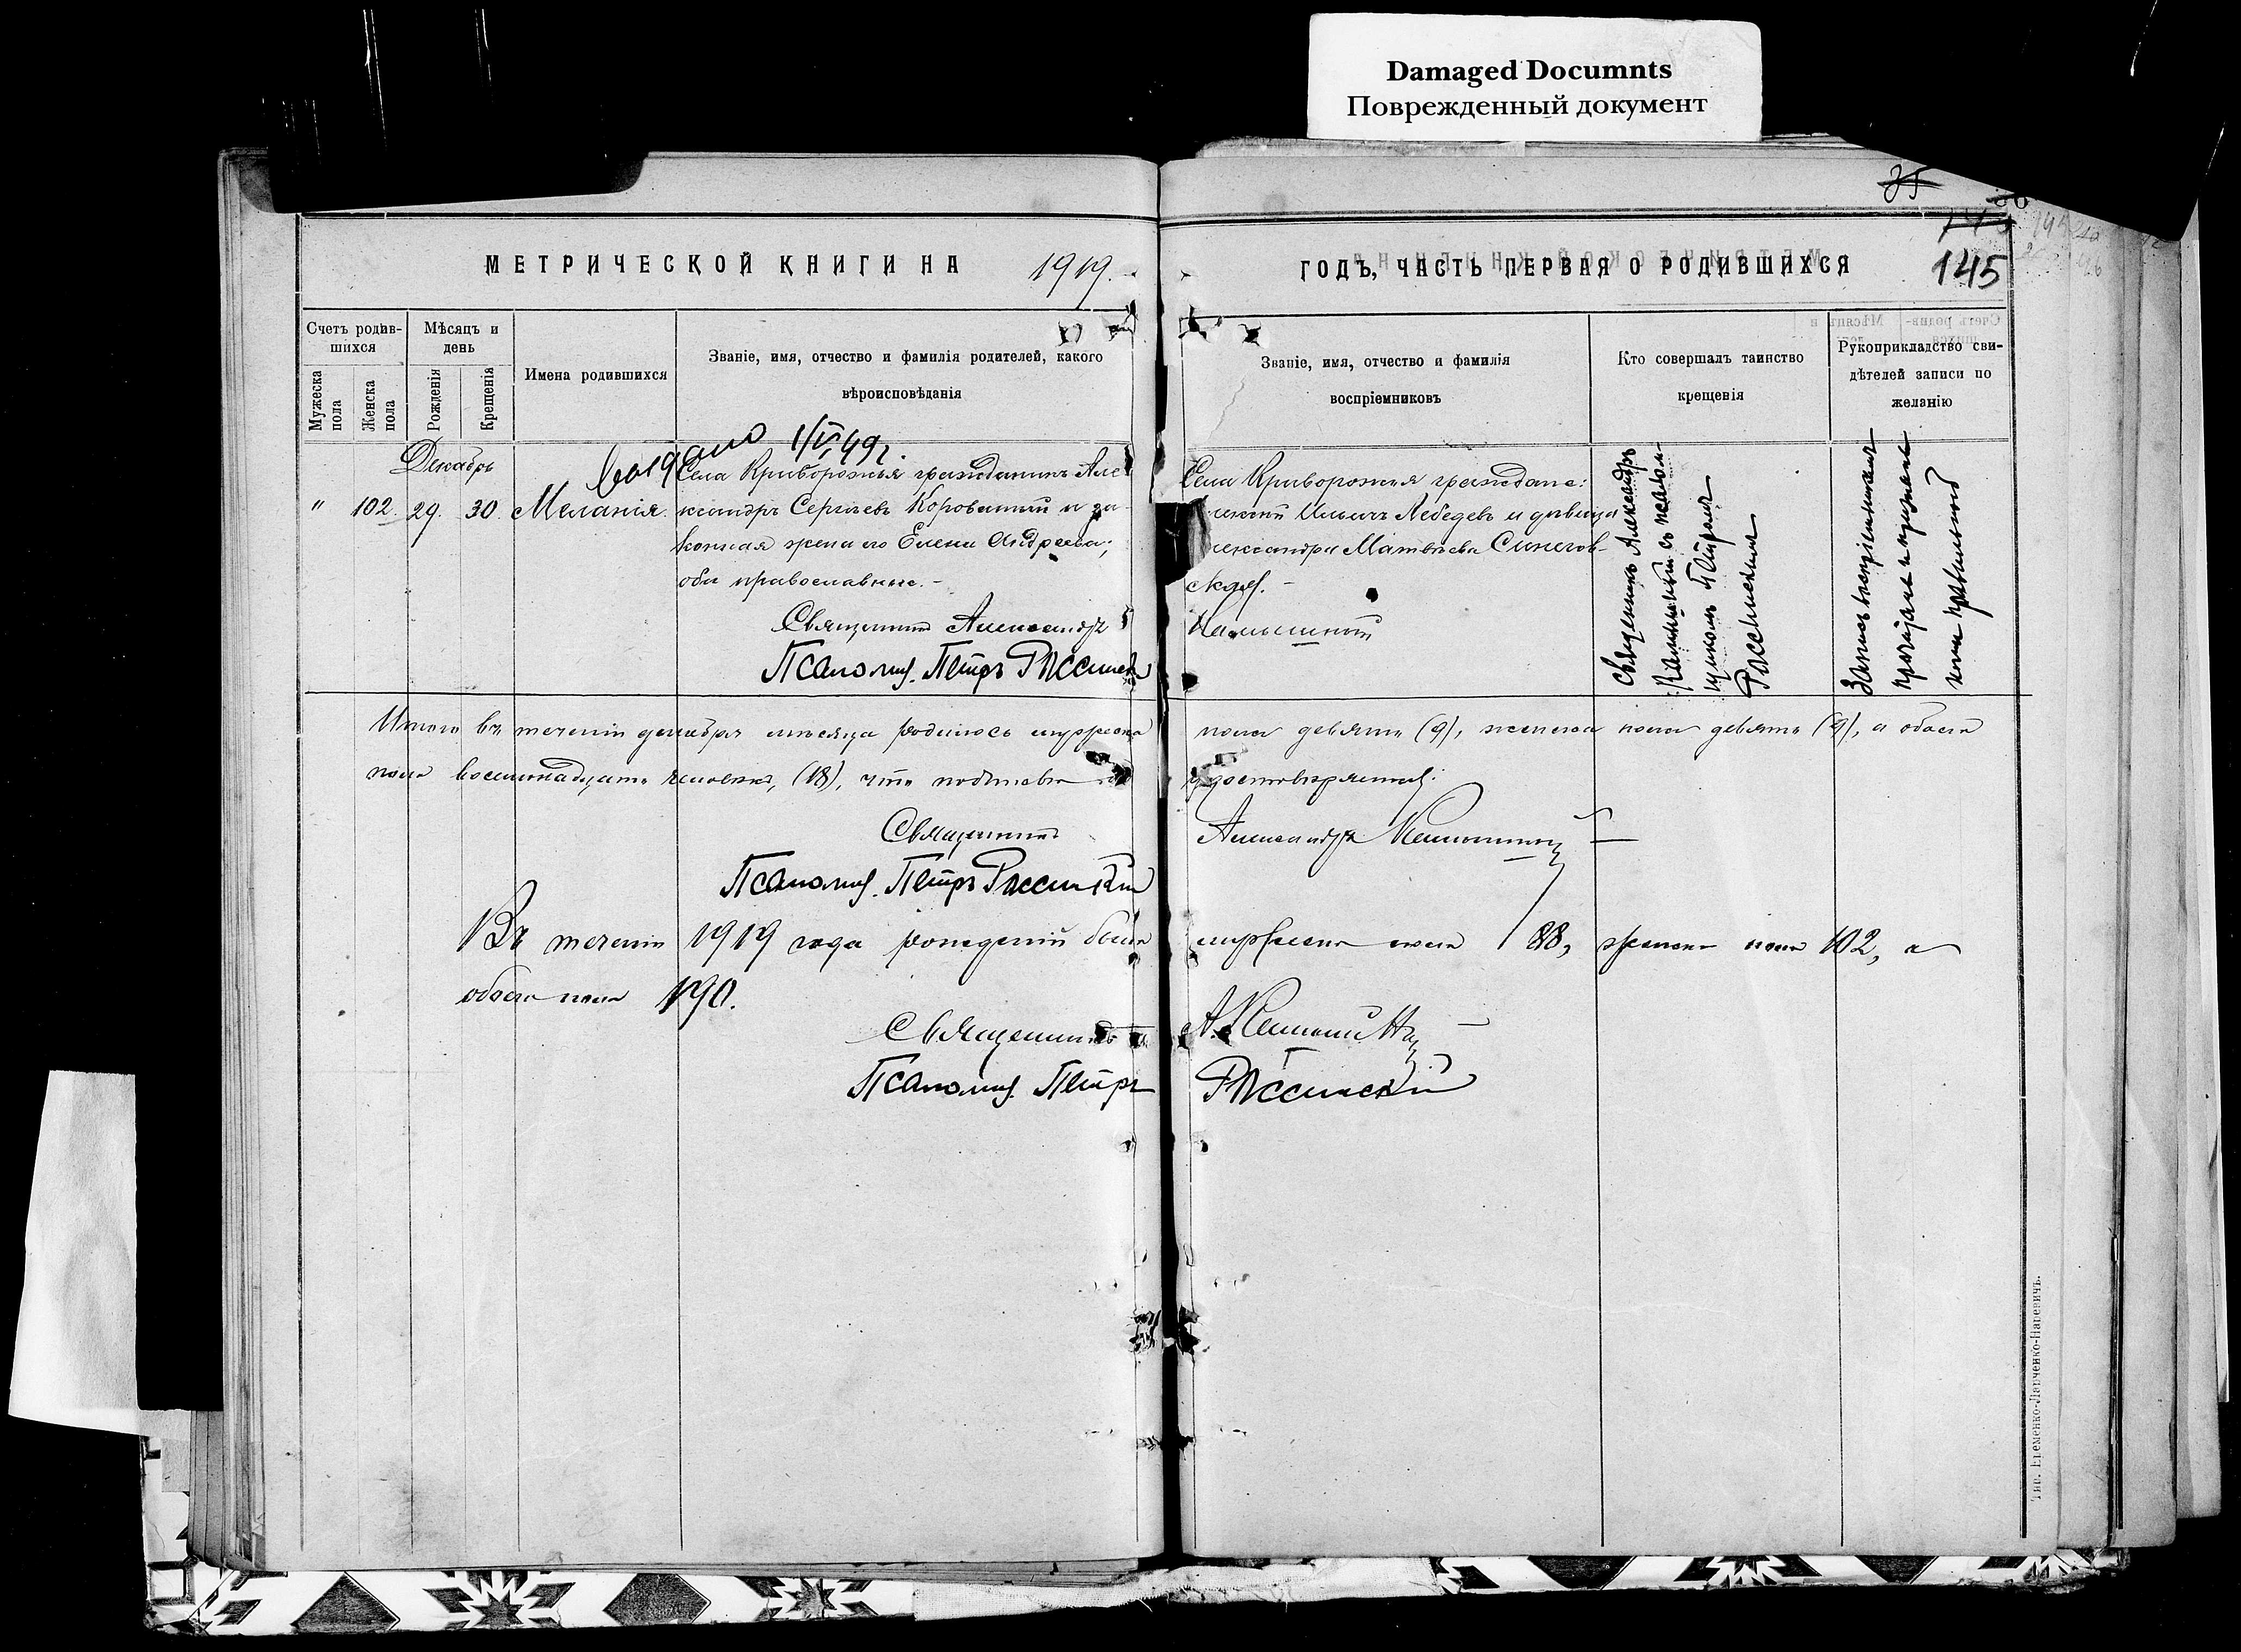 Damaged Documnts
Поврежденный документ
35
145
МЕТРИЧЕСКОЙ КНИГИ НА 1919.
ГОДЪ, ЧАСТЬ ПЕРВАЯ О РОДИВШИХСЯ
Счетъ родив-
шихся
Мѣсяцъ и
день
Мужеска
пола
Женска
пола
Рожденія
Крещенія
Имена родившихся
Званіе, имя, отчество и фамилія родителей, какого
вѣроисповѣданія
Званіе, имя, отчество и фамилія
воспріемниковъ
Кто совершалъ таинство
крещенія
Рукоприкладство сви-
дѣтелей записи по
желанію
Декабрь
" 102. 29. 30. Меланія.
Села Криворожья гражданинъ Але
ксандръ Сергѣевъ Коровашній и за-
конная жена его Елена Андреева;
оба православные.-
Священникъ Александръ
Псаломщ. Петръ Россинскій
Села Криворожья граждане:
Ильичъ Лебедевъ и дѣвица
Александра Матвѣева Синегов-
ская.-
Священникъ Александръ
съ псалом-
щикомъ Петромъ
Россинскимъ
Итого въ теченіи декабря мѣсяца родилось мужеска
пола девять (9), женска пола девять (9), а обоего
пола восемнадцать человѣкъ, (18), что подписью
удостовѣряемъ:
Священникъ
Александръ
Псаломщ. Петръ Россинскій
Въ теченіи 1919 года рожденій было
мужеска пола 88, женска пола 102, а
обоего пола 190.
Священникъ
Псаломщ. Петръ
Россинскій
Тип. Еременко-Ларченко-Наревичъ.